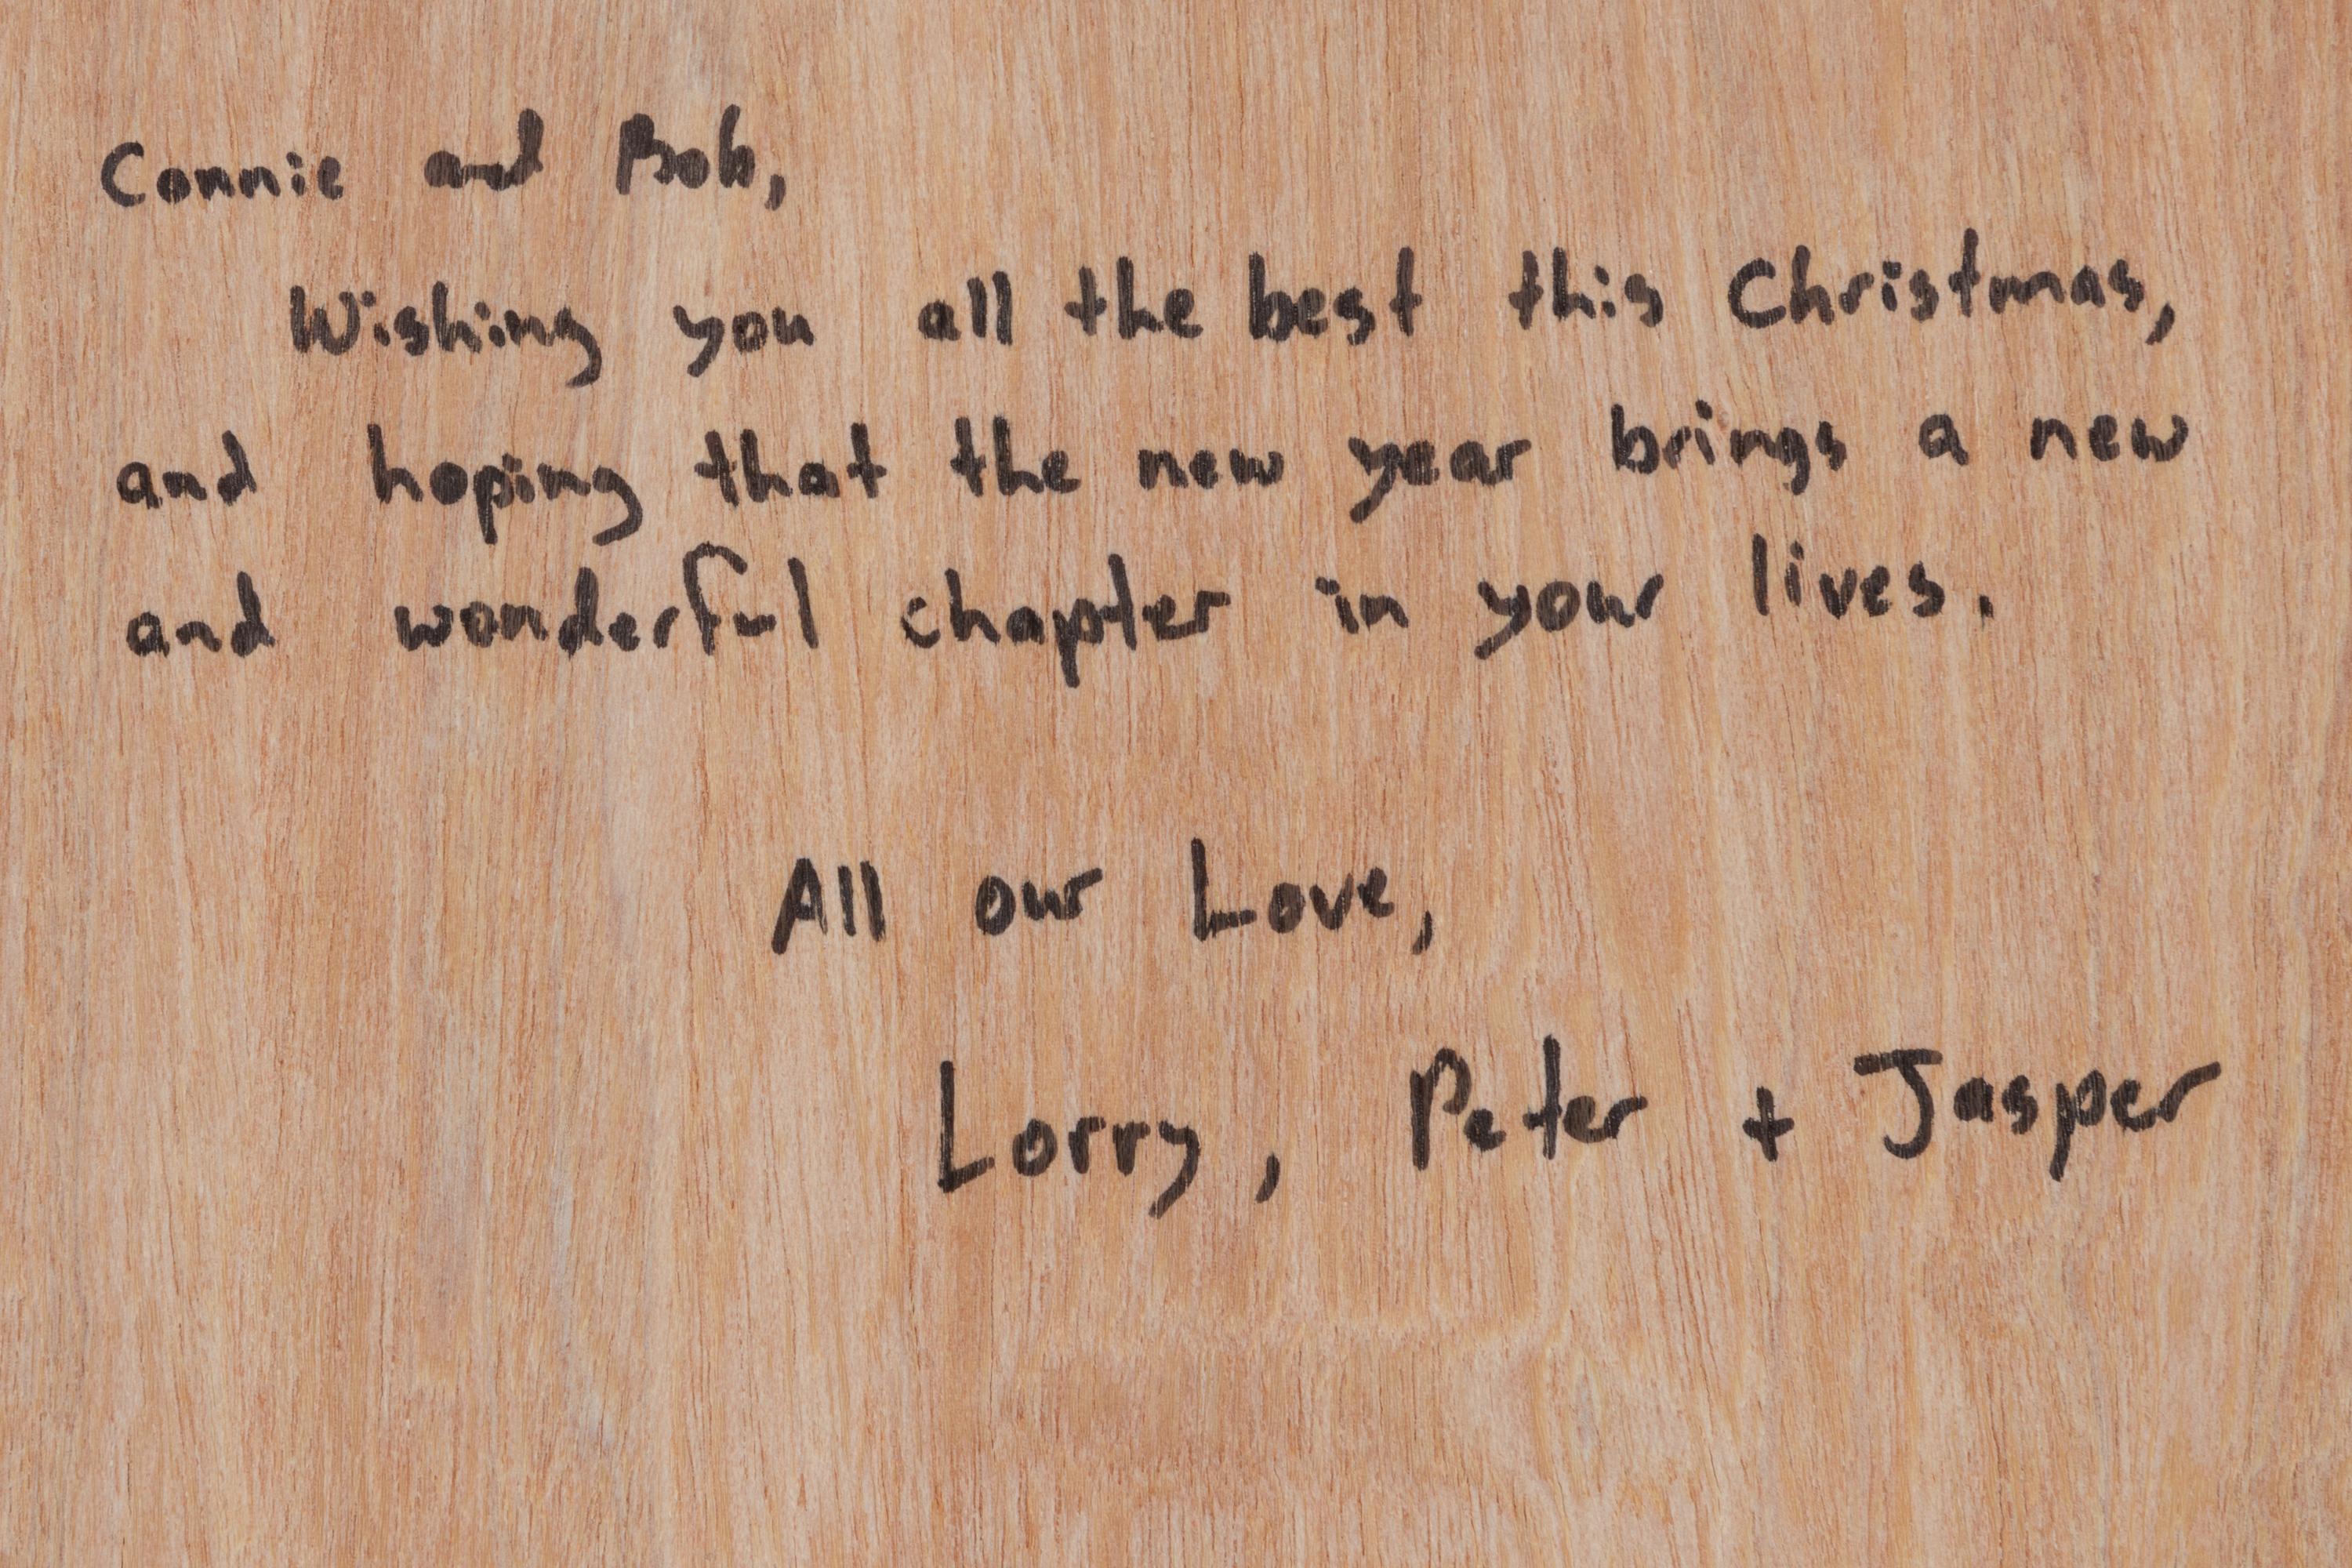 Connie and Bob,
Wishing you all the best this Christmas,
and hoping that the new year brings a new
and wonderful chapter in your lives.
All our Love,
Lorry, Peter + Jasper